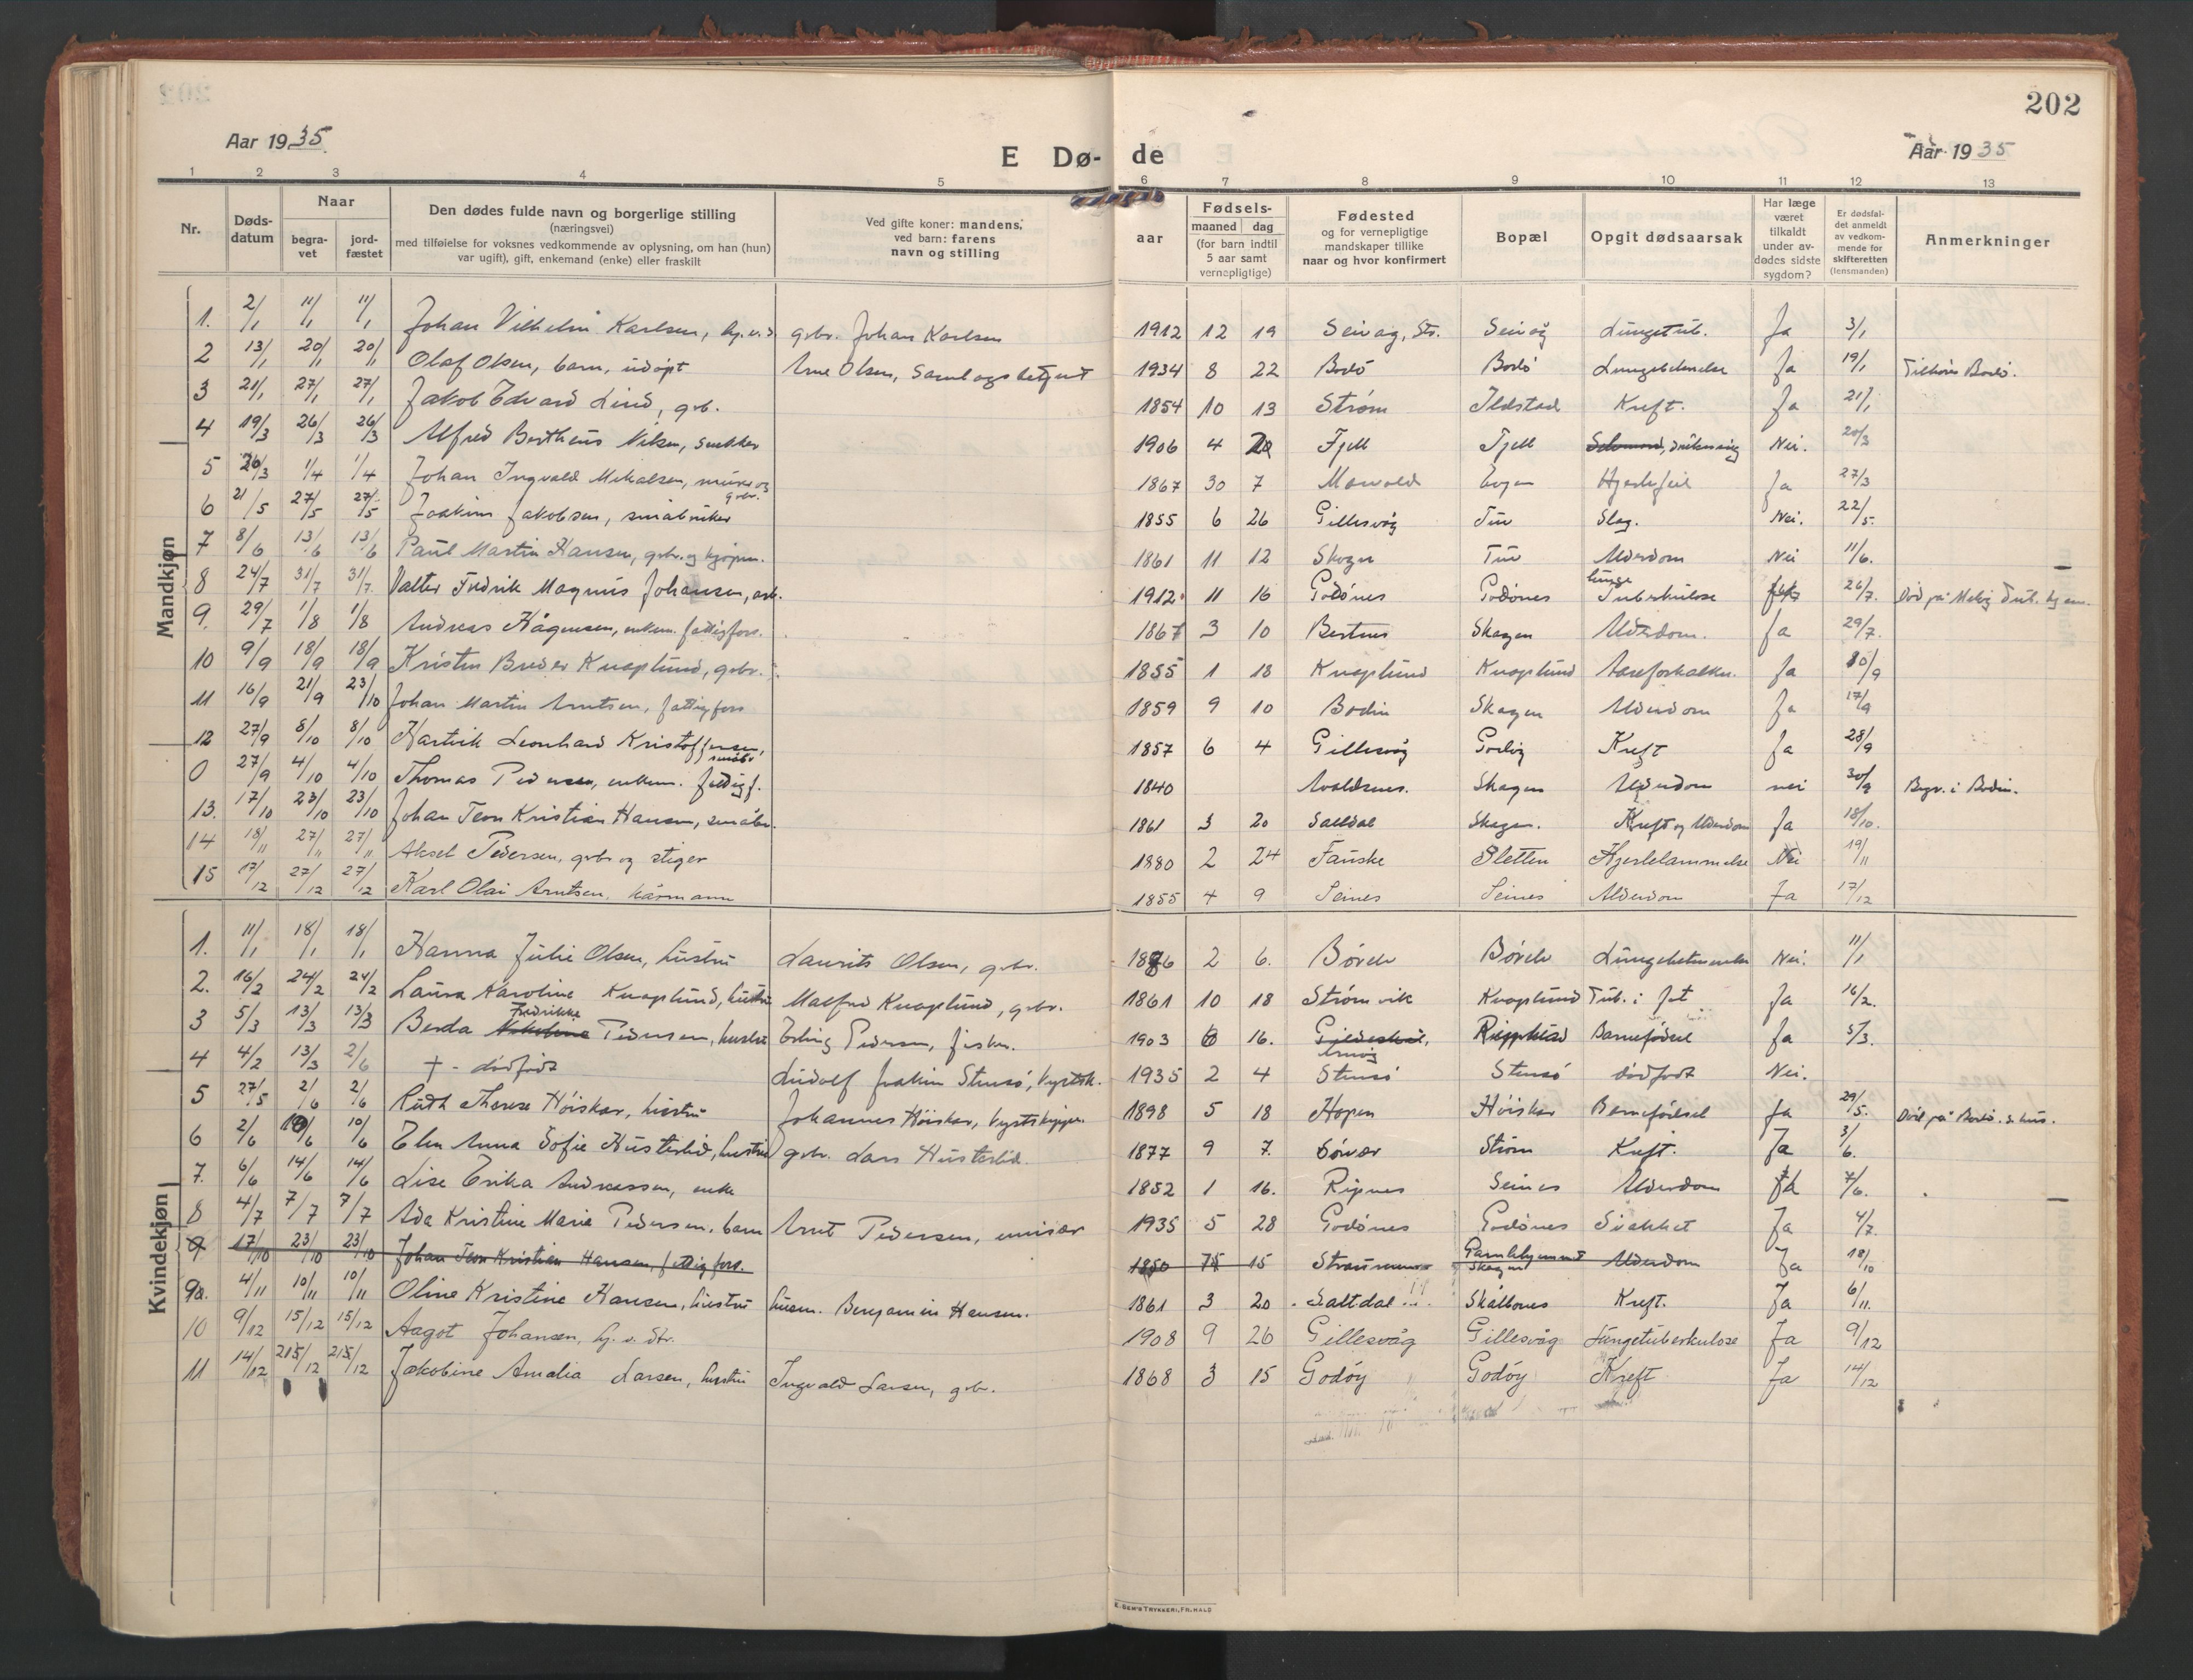 202
Aar 1935
E Dø- de
Aar 1935
1 2 3 4 5 6 7 8 9 10 11 12 13
Nr.
Døds-
datum
Naar
begra-
vet
jord-
fæstet
Den dødes fulde navn og borgerlige stilling
(næringsvei)
med tilføielse for voksnes vedkommende av oplysning, om han (hun)
var ugift), gift, enkemand (enke) eller fraskilt
Ved gifte koner: mandens,
ved barn: farens
navn og stilling
aar
Fødsels-
maaned dag
(for barn indtil
5 aar samt
vernepligtige)
Fødested
og for vernepligtige
mandskaper tillike
naar og hvor konfirmert
Bopæl
Opgit dødsaarsak
Har læge
været
tilkaldt
under av-
dødes sidste
sygdom?
Er dødsfal-
det anmeldt
av vedkom-
mende for
skifteretten
(lensmanden)
Anmerkninger
Mandkjøn
1. 2/1 11/1 11/1 Johan Vilhelm Karlsen, gbr. Johan Karlsen 1912 12 19 Seivag, Str. Seivåg Lungetub. Ja 3/1
2 13/1 20/1 20/1 Olaf Olsen, barn, udøpt Arne Olsen, Samlagsbetjent 1934 8 22 Bodö Bodö Lungebetendelse Ja 19/1 Tilhörer Bodö.
3 21/1 27/1 27/1 Jakob Edvard Lind, gbr. 1854 10 13 Strøm Ildstad Kreft. Ja 21/1
4 19/3 26/3 26/3 Alfred Bertheus Nilsen, snekker 1906 4 20 Fjell Fjell Selvmord, drukning Nei. 20/3
5 26/3 1/4 1/4 Johan Ingvald Mikalsen, murer og gbr. 1867 30 7 Hjertefeil Ja 27/3
6 21/5 27/5 27/5 Joakim Jakobsen, småbruker 1855 6 26 Gillesvåg Tuv Slag. Nei. 22/5.
7 8/6 13/6 13/6 Paul Martin Hansen, gbr. og kjøpm. 1861 11 12 Skogen Tuv Alderdom Nei 11/6.
8 24/7 31/7 31/7. Valter Fredrik Magnus Johansen, arb. 1912. 11 16 Godönes Godönes lunge Tuberkulose 26/7. Död på
9. 29/7 1/8 1/8 Andreas Hågensen, enkem. fattigfors. 1867 3 10 Bertnes Skagen Alderdom. Ja 29/7.
10 9/9 18/9 18/9 Kristen Breder Knaplund, gbr. 1855 1 18 Knaplund Knaplund Aareforkalkn. Ja 10/9
11 16/9 21/9 23/10 Johan Martin Arntsen, fattigfors 1859 9 10 Bodin Skagen Alderdom Ja 17/9
12 27/9 8/10 8/10 Hartvik Leonhard Kristoffersen, småbr 1857 6 4 Gillesvåg Godöy Kreft Ja 28/9
0 27/9 4/10 4/10 Thomas Pedersen, enkem. fattigf. 1840 Avaldsnes. Skagen Alderdom nei 30/9 Begr. i Bodin.
13. 17/10 23/10 23/10 Johan Teon Kristian Hansen, småbr. 1861 3 20 Saltdal Skagen. Kreft og Alderdom Ja 18/10.
14 18/11 27/11 27/11 Aksel Pedersen, gbr og stiger 1880 2 24 Fauske Sletten Hjertelammelse Nei 19/11
15 17/12 27/12 27/12 Karl Olai Arntsen, kårmann 1855 4 9 Seines Seines Alderdom Ja 17/12
Kvindekjøn
1. 11/1 18/1 18/1 Hanna Julie Olsen, hustru Laurits Olsen, gbr. 1876 2 6. Børelv Børelv Lungebetendelse Nei. 11/1
2. 16/2 24/2 24/2 Laura Karoline Knaplund, hustru Malfred Knaplund, gbr. 1861 10 18 Strømvik Knaplund Tub. i fot Ja 16/2.
3 5/3 13/3 13/3 Berda Fredrikke Pedersen, hustru Erling Pedersen, fisker. 1903 6 16. Gildeskål, Barnefödsel Ja 5/3.
4 4/2 13/3 2/6 + - dødfødt Ludolf Joakim Stensö, Vyrtsk. 1935 2 4 Stensö Stensö dödfødt Nei.
5 27/5 2/6 2/6 Ruth Therese Höiskar, hustru Johannes Höiskar, Vyrtskjøper. 1898 5 18 Hopen Höiskar Barnefödsel Ja 29/5. Död på Bodö. s. hus.
6 2/6 10/6 10/6 Elen Anna Sofie Husterlid, hustru gbr. Lars Husterlid. 1877 9 7. Sörvær Ström Kreft. Ja 3/6.
7. 6/6 14/6 14/6 Lise Erika Andreassen, enke 1852 1 16. Ripnes Seines Alderdom Ja 7/6.
8 4/7 7/7 7/7 Ada Kristine Marie Pedersen, barn Arnt Pedersen, emisær 1935 5 28 Godönes Godönes Svakhet Ja 4/7.
9. 17/10 23/10 23/10 Johan Teon Kristian Hansen, fattigfors. 1850 15 Gamlehjemmet Skagen Alderdom Ja 18/10
9a. 4/11 10/11 10/11 Oline Kristine Hansen, hustru husm. Benjamin Hansen. 1861 3 20 Saltdal Skålbones Kreft. Ja 6/11.
10 9/12 15/12 15/12 Aagot Johansen, hj. v. dtr. 1908 9 26 Gillesvåg Gillesvåg Lungetuberkulose Ja 9/12
11 14/12 215/12 215/12 Jakobine Amalia Larsen, hustru Ingvald Larsen, gbr. 1868 3 15 Godöy Godöy Kreft Ja 14/12
E. SEM'S TRYKKERI, FR.HALD